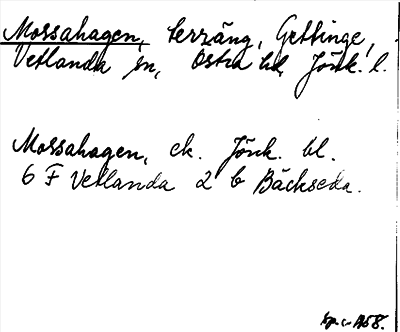 Mossahagen, terräng, Gettinge,
Vetlanda sn, Östra hd, Jönk. l.
Mossahagen, ek. Jönk. bl.
6 F Vetlanda 2 b Bäckseda.
1958.